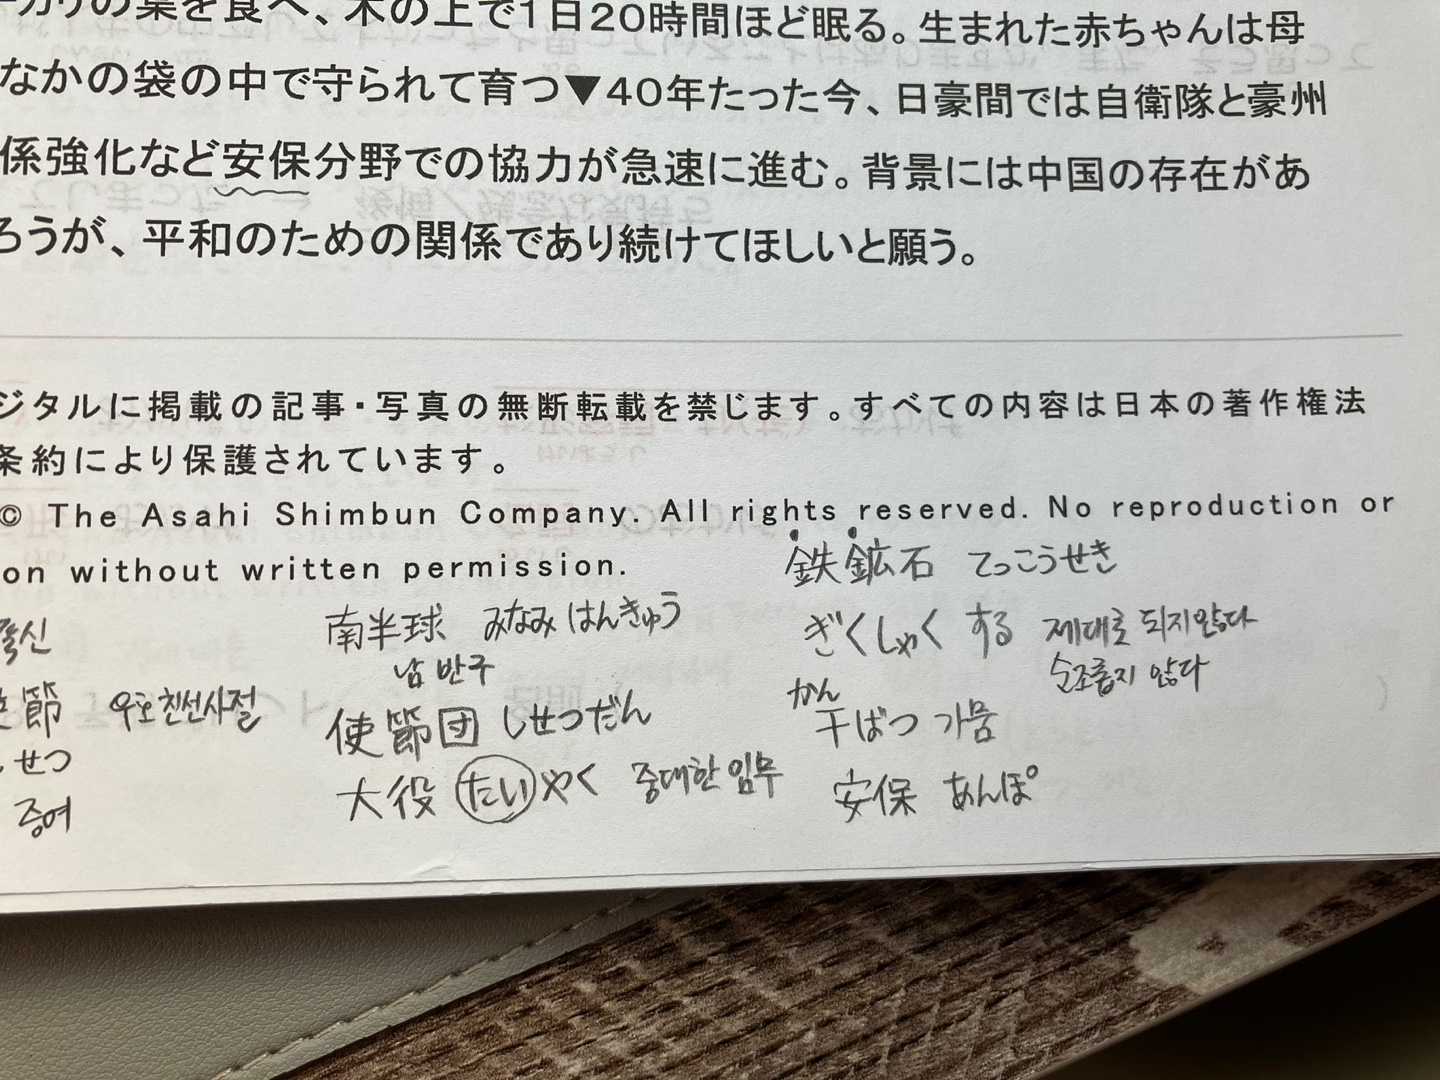 ーカリの葉を食べ、木の上で1日20時間ほど眠る。生まれた赤ちゃんは母
なかの袋の中で守られて育つ▼40年たった今、日豪間では自衛隊と豪州
係強化など安保分野での協力が急速に進む。背景には中国の存在があ
ろうが、平和のための関係であり続けてほしいと願う。
ジタルに掲載の記事・写真の無断転載を禁じます。すべての内容は日本の著作権法
条約により保護されています。
© The Asahi Shimbun Company. All rights reserved. No reproduction or
on without written permission.
鉄鉱石 てっこうせき
南半球 みなみはんきゅう
남반구
ぎくしゃくする 제대로 되지않다
순조롭지 않다
節 우호친선사절
せつ
使節団 しせつだん
かん
干ばつ 가뭄
증여
大役 たいやく 중대한 임무
安保 あんぽ